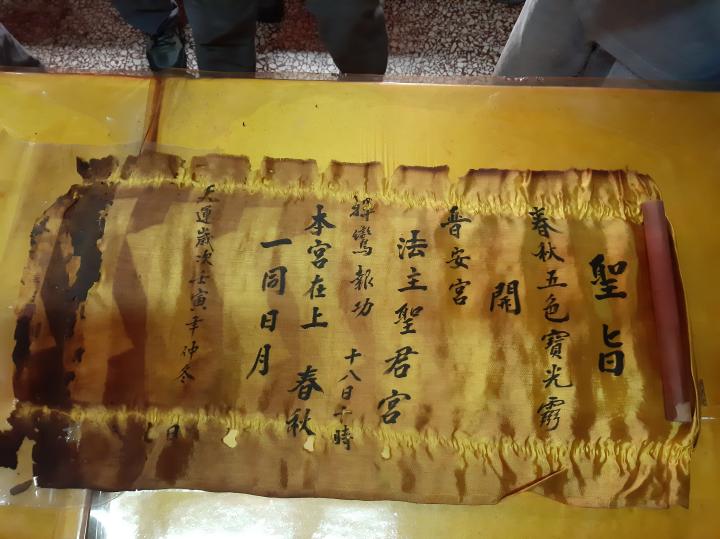 聖旨
春秋五色寶光霱
開
普安宮
法主聖君宮
禪鸞報功 十八日十時
本宮在上 春秋
一同日月
天運歲次壬寅年仲冬 日